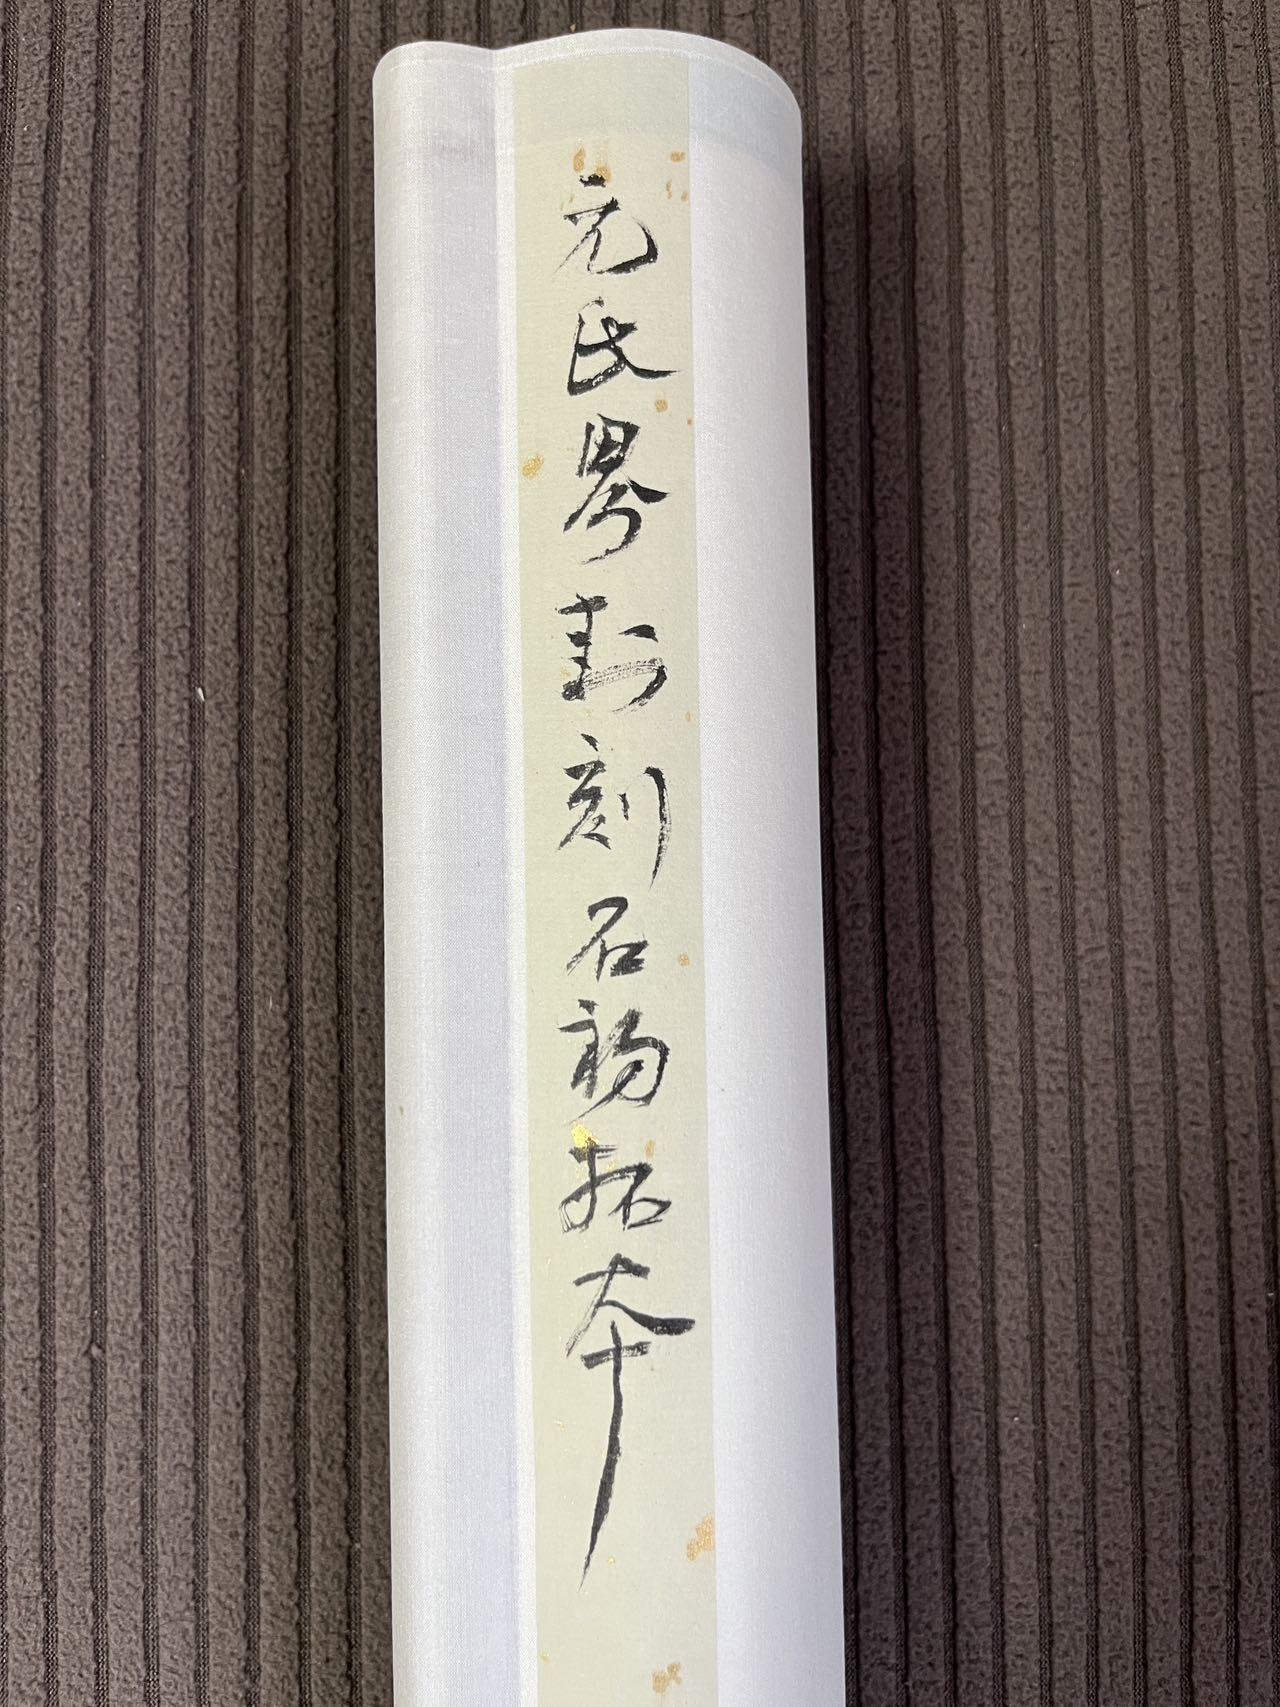 元氏界封刻石初拓本